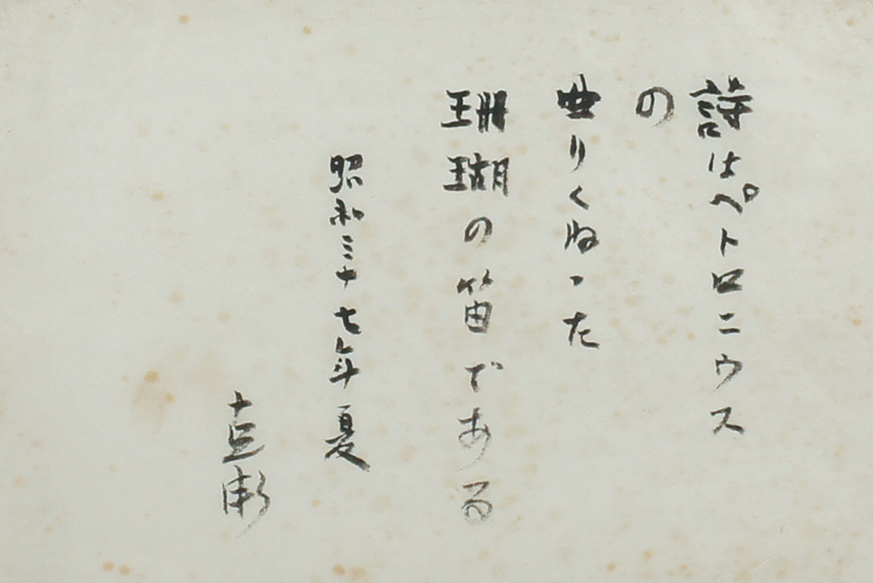 詩はペトロニウス
の
曲りくねった
珊瑚の笛である
昭和三十七年夏